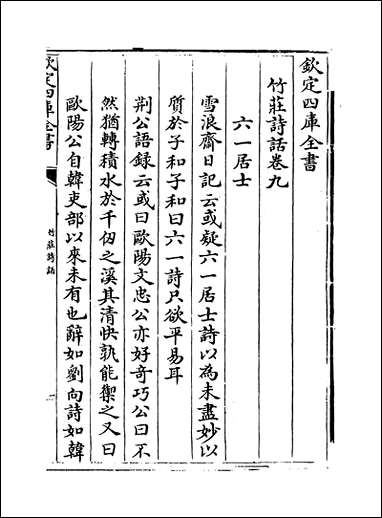 欽定四庫全書
竹莊詩話卷九
六一居士
雪浪齋日記云或疑六一居士詩以為未盡妙以
質於子和子和曰六一詩只欲平易耳
荆公語録云或曰歐陽文忠公亦好奇巧公曰不
然猶轉積水於千仞之溪其清快孰能禦之又曰
歐陽公自韓吏部以來未有也辭如劉向詩如韓
欽定四庫全書
竹莊詩話